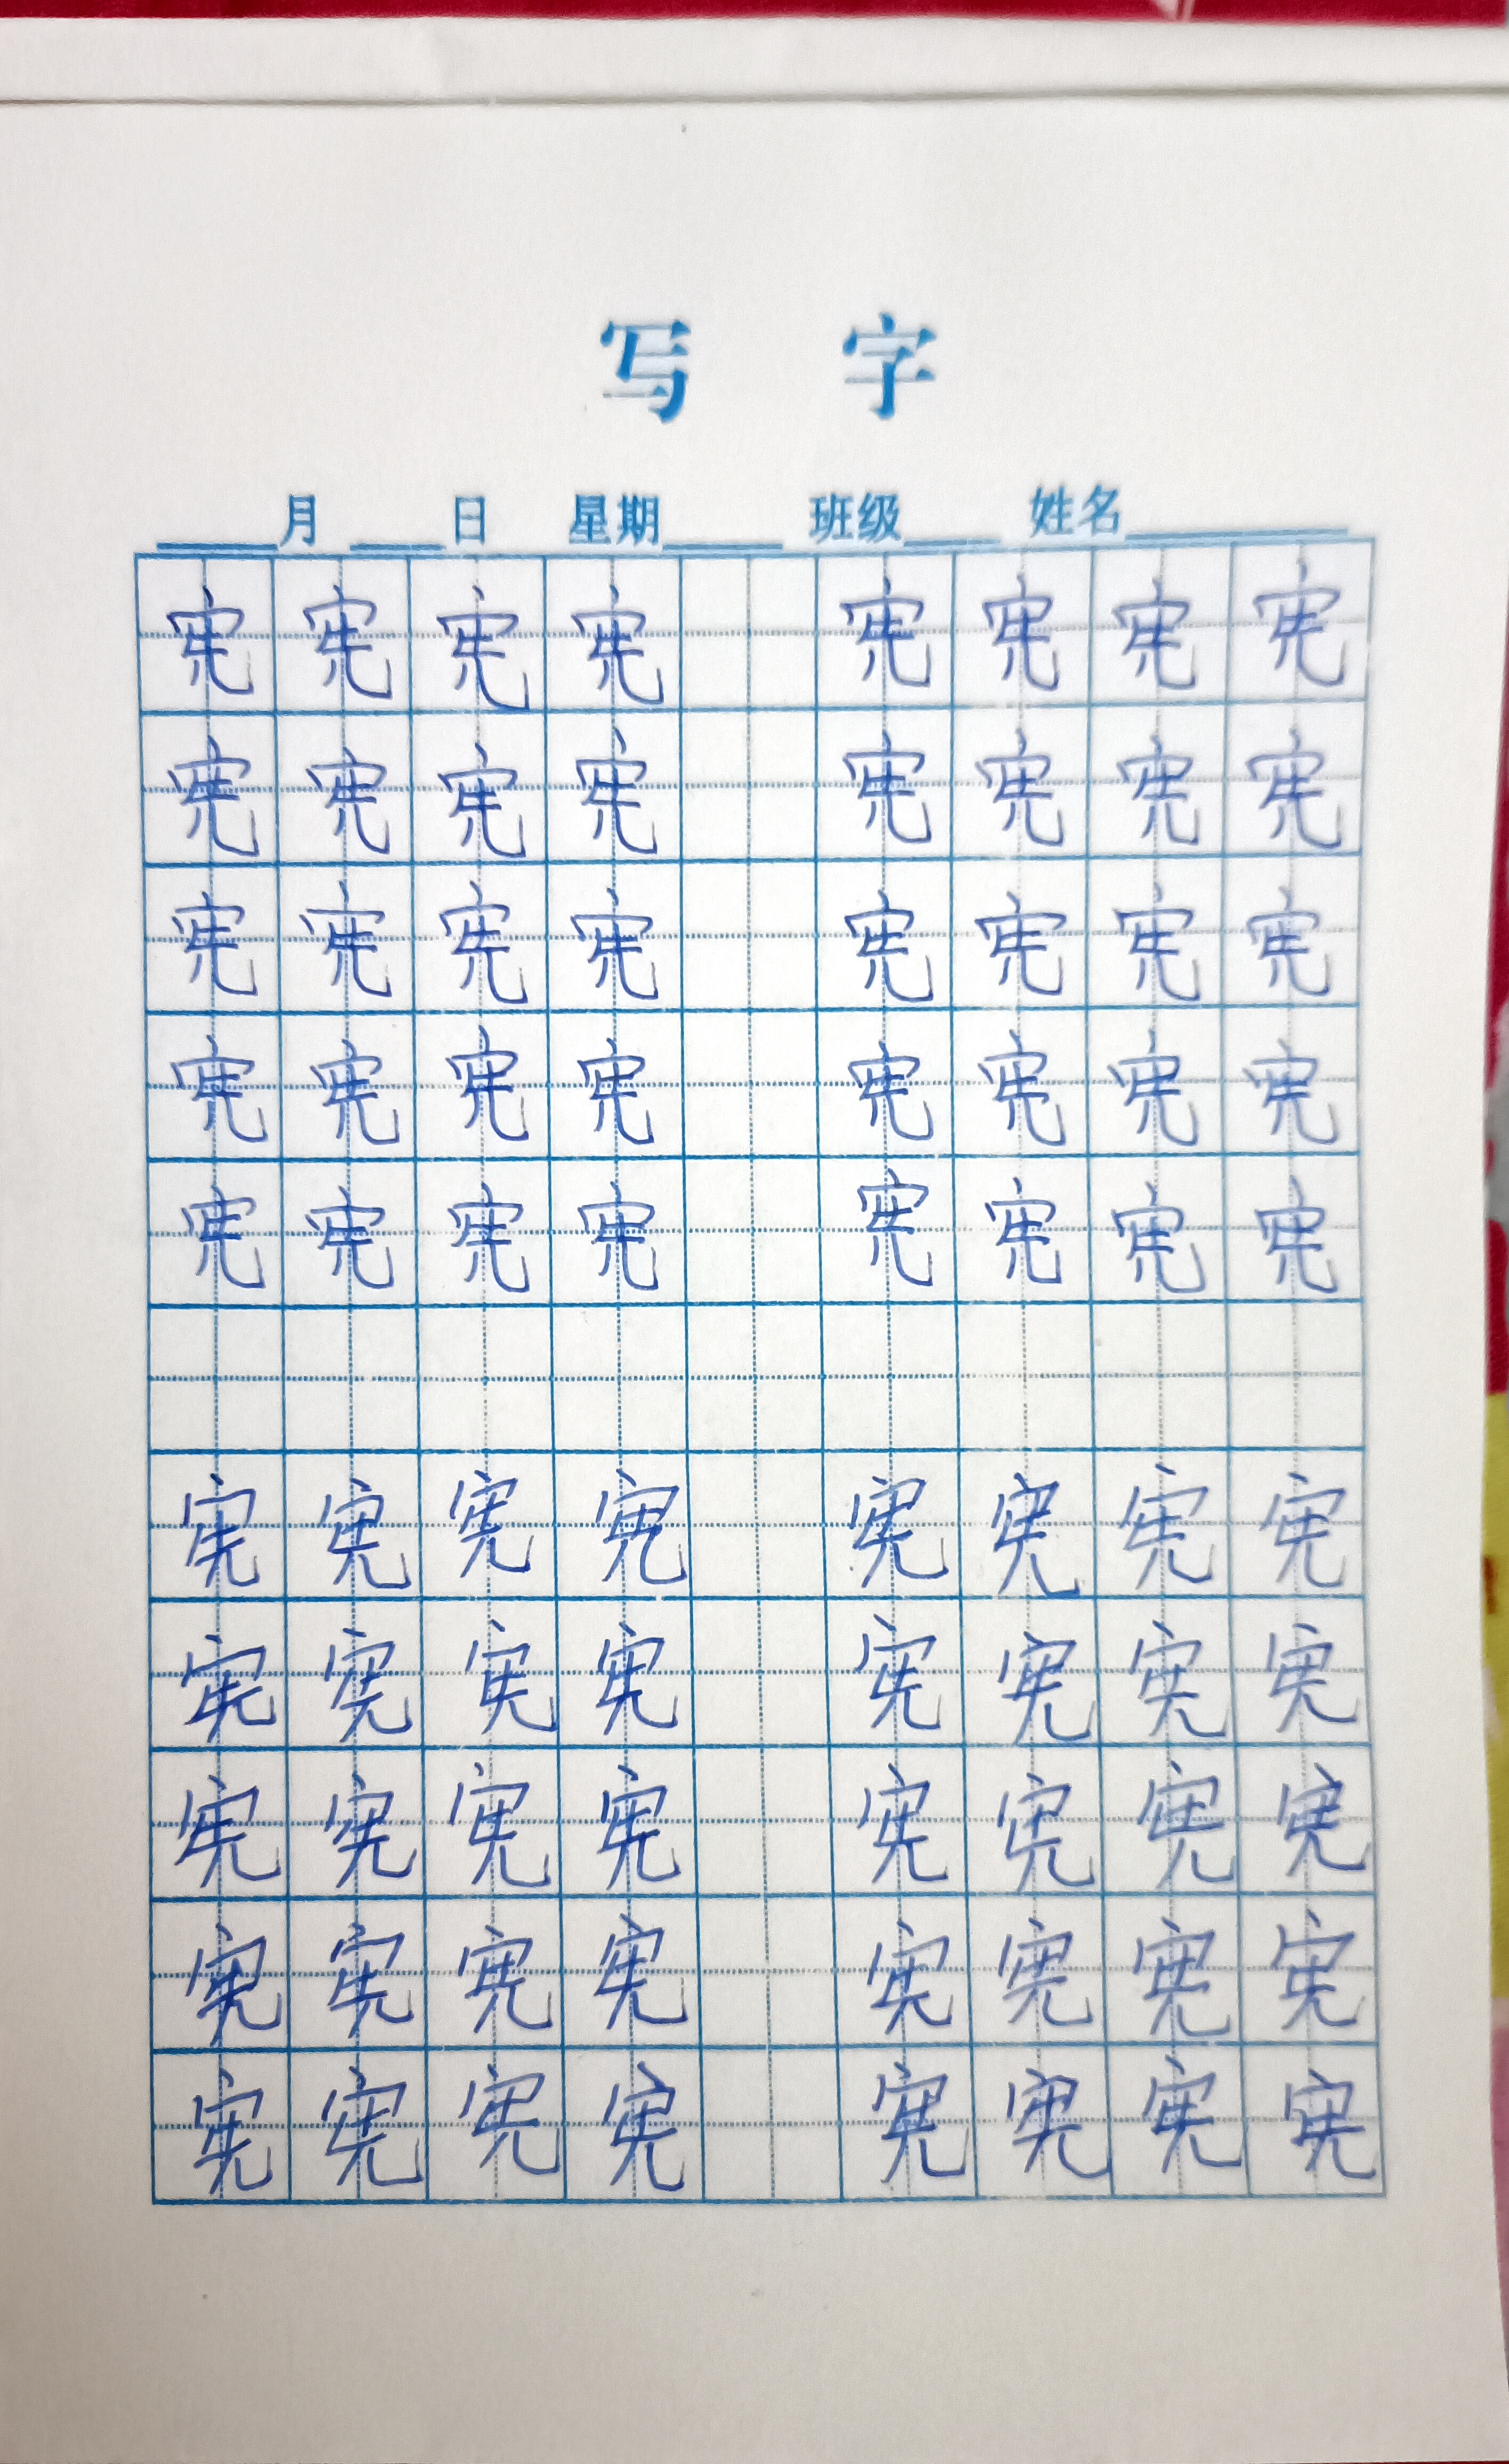 写 字
月 日 星期 班级 姓名
宪 宪 宪 宪 宪 宪 宪 宪
宪 宪 宪 宪 宪 宪 宪 宪
宪 宪 宪 宪 宪 宪 宪 宪
宪 宪 宪 宪 宪 宪 宪 宪
宪 宪 宪 宪 宪 宪 宪 宪
宪 宪 宪 宪 宪 宪 宪 宪
宪 宪 宪 宪 宪 宪 宪 宪
宪 宪 宪 宪 宪 宪 宪 宪
宪 宪 宪 宪 宪 宪 宪 宪
宪 宪 宪 宪 宪 宪 宪 宪